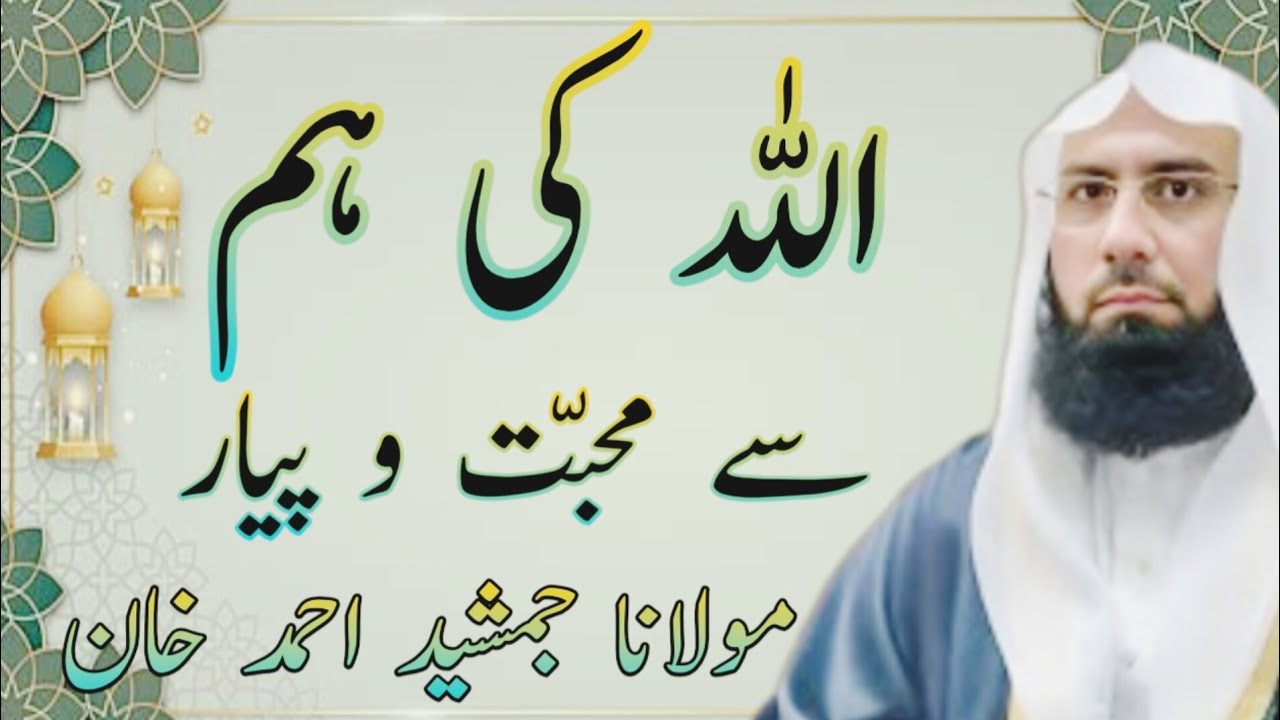 اللہ کی ہم
سے محبّت و پیار
مولانا جمشید احمد خان